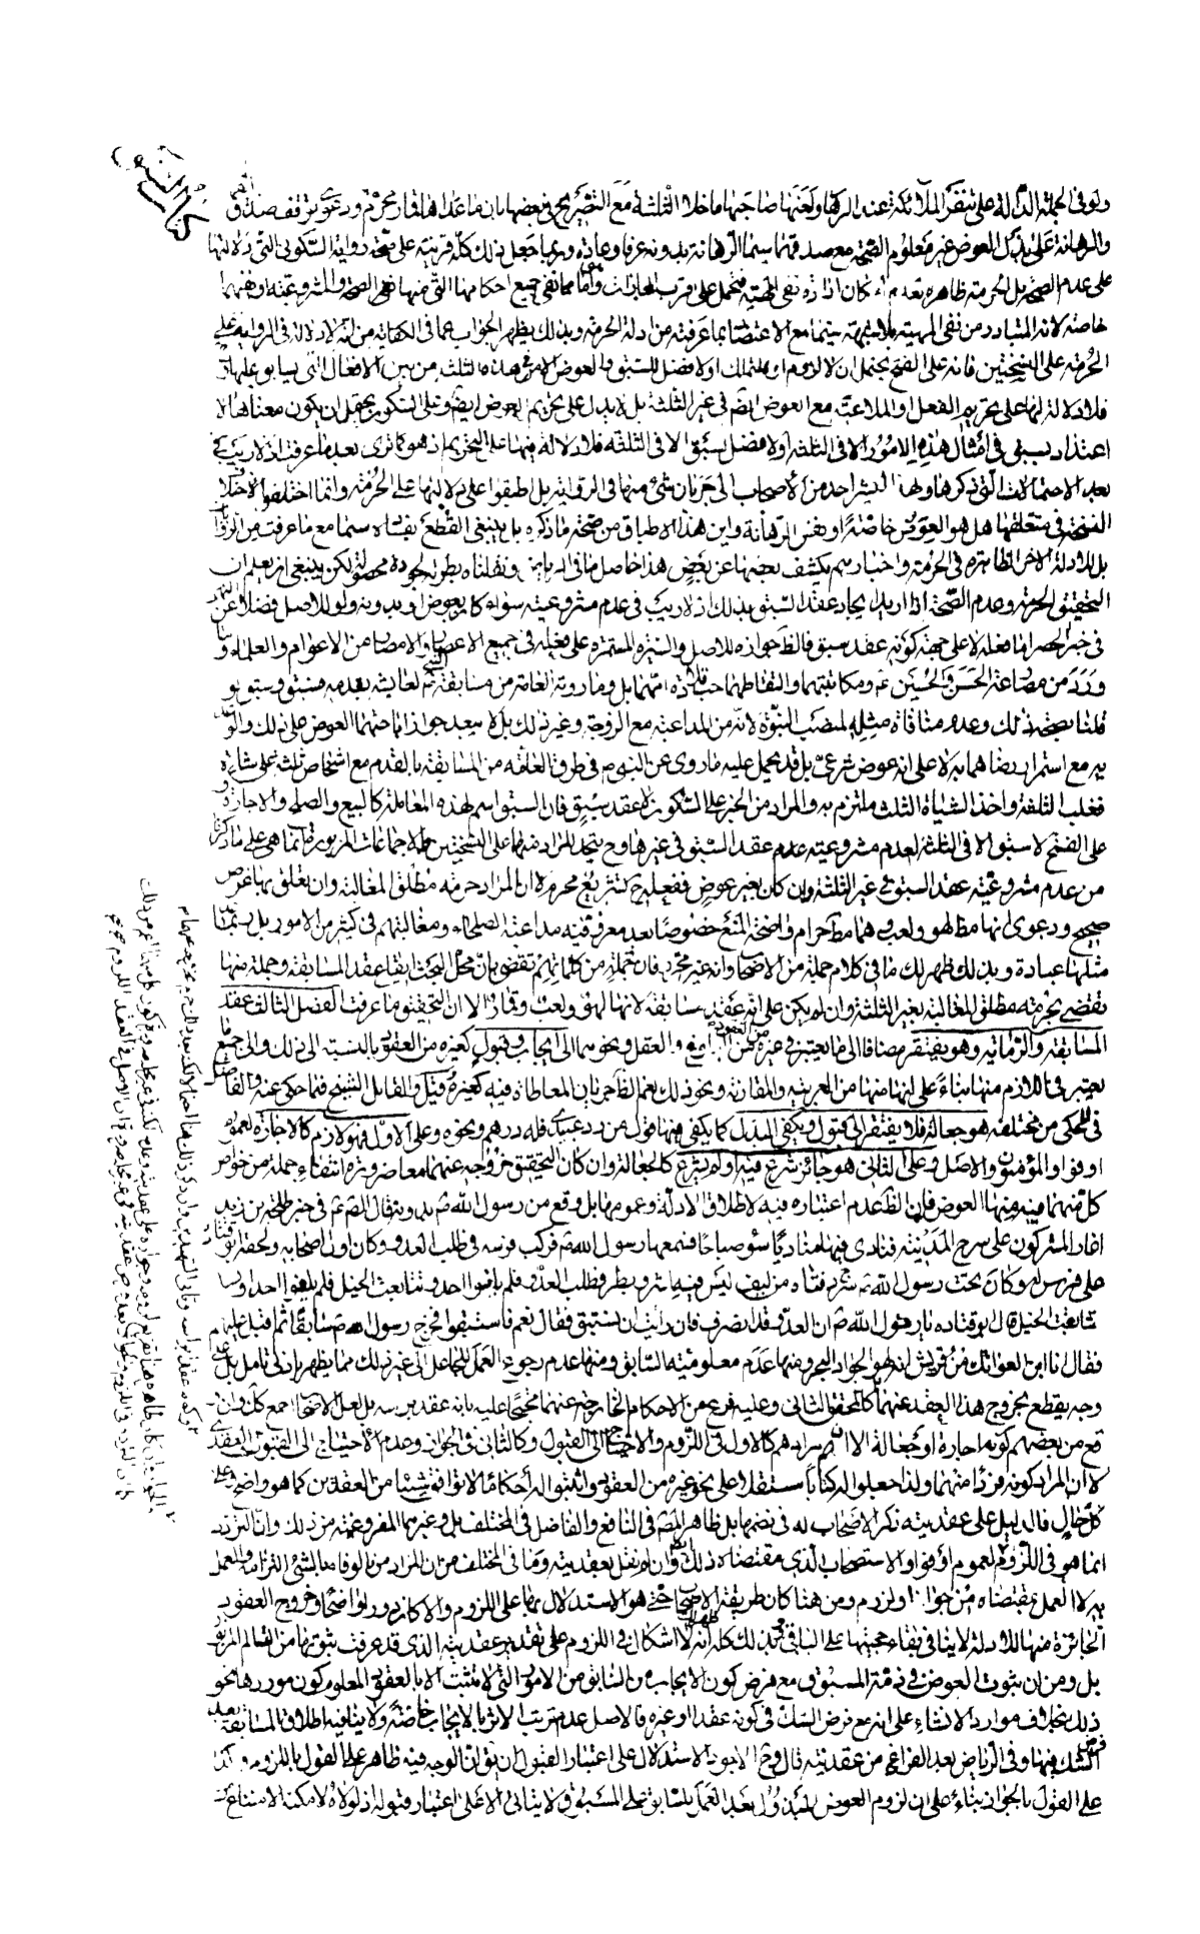 كتاب السبق
ولو في الجملة الدالة على تنفر الملائكة عند الرهان ولعنها صاحبها ما خلا الثلثة مع التصريح في بعضها بان ما عداها قمار محرم ودعوى توقف صدق
والرهانة على بذل العوض غير معلوم الصحة مع صدقهما سيما الرهانة بدونه عرفا وعادة وربما جعل ذلك كله قرينة على صحة رواية السكوني التي دلالتها
على عدم الصحة بل الحرمة ظاهرة بعدم كان ارادة نفي المهية فتحمل على اقرب المجازات وهما نفي جميع احكامها التي منها نفي الصحة والمشروعية او نفيهما
خاصة لانه المتبادر من نفي المهية بلا شبهة سيما مع الاعتضاد بما عرفته من ادلة الحرمة وبذلك يظهر الجواب عما في الكفاية من انه لا دلالة في الرواية على
الحرمة على النسختين فانه على الفتح يحتمل ان لا لزوم او لا تملك او لا فضل للسبق والعوض الا في هذه الثلثة من بين الافعال التي يسابق عليها
فلا دلالة لها على تحريم الفعل او الملاعبة مع العوض ايضا في غير الثلثة بل لا يدل على تحريم العوض ايضا وعلى السكون يحتمل ان يكون معناها لا
اعتداد بسبق في امثال هذه الامور الا في الثلثة او لا فضل لسبق الا في الثلثة فلا دلالة فيها على التحريم اذ هو كما ترى بعد ما عرفت اذ لا ريب في
بعد الاحتمالات التي ذكرها ولهذا لم يشر احد من الاصحاب الى جريان شيء منها في الرواية بل اطبقوا على دلالتها على الحرمة وانما اختلفوا لاختلاف
النسخة في متعلقها هل هو العوض خاصة او نفس الرهانة واين هذا الاطباق من صحة ما ذكره بل ينبغي القطع بفساده سيما مع ما عرفت من الروايات
بل للادلة الاخر الظاهرة في الحرمة واخبارهم يكشف بعضها عن بعض هذا حاصل ما في الرياض ونقلناه بطوله لجودة محصوله لكن ينبغي ان يعلم ان
التحقيق الحرمة وعدم الصحة اذا اريد ايجاد عقد السبق بذلك اذ لا ريب في عدم مشروعيته سواء كان بعوض او بدونه ولو للاصل فضلا عن النهي
في خبر الحصر اما فعله لا على جهة كونه عقد سبق فالظ جوازه للاصل والسيرة المستمرة على فعله في جميع الاعصار والامصار من الاعوام والعلماء و
ورد من مصارعة الحسن والحسين ع ومكاتبتهما والتقاطهما حب قلادة امهما بل وما روته العامة من مسابقة النبي لعايشة بقدمه فسبق وسبق لو
قلنا بصحة ذلك وعدم منافاة مثله لمنصب النبوة لانه من المداعبة مع الزوجة وغير ذلك بل لا يبعد جواز اباحتهما العوض على ذلك والوعد
به مع استمرار رضاهما به لا على انه عوض شرعي بل قد يحمل عليه ما روى عن النبي ص في طرق العامة من المسابقة بالقدم مع اشخاص ثلثة على شاة
فغلب الثلثة واخذ الشياه الثلث ملتزم به والمراد من الخبر على السكون لا عقد سبق فان السبق اسم لهذه المعاملة كالبيع والصلح والاجارة و
على الفتح لا سبق الا في الثلثة لعدم مشروعية عدم عقد السبق في غيرها وح يتحد المراد منها على النسختين
من عدم مشروعية عقد السبق في غير الثلثة وان كان بغير عوض ففعله ح كتشريع محرم لا ان المراد حرمة مطلق المغالبة وان تعلق بها غرض
صحيح ودعوى انها مط لهو ولعب وهما مط حرام واضحة المنع خصوصا بعد معروفية مداعبة الصلحاء ومغالبتهم في كثير من الامور بل ربما
مثلها عبادة وبذلك ظهر لك ما في كلام جملة من الاصحاب وانه غير محرر فان جملة من كلماتهم تقضي بان محل البحث ايقاع عقد المسابقة وجملة منها
تقتضي بحرمة مطلق المغالبة بغير الثلثة وان لم يكن على انه عقد مسابقة لانها لهو ولعب وقمار الا ان التحقيق ما عرفت الفصل الثالث عقد
المسابقة والرماية وهو يفتقر مضافا الى ما يعتبر في غيره من العقود من البلوغ والعقل ونحوهما الى ايجاب وقبول كغيره من العقود بالنسبة الى ذلك والى جميع ما
يعتبر في اللازم منها بناء على انها منها من العربية والمقارنة ونحو ذلك نعم الظ جريان المعاطاة فيه كغيره وقيل والقائل الشيخ فيما حكى عنه والفاضل
في المحكي من مختلفه هو جعالة فلا يفتقر الى قبول ويكفي البذل كما يكفي فيها قول من رد عبدي فله درهم ونحوه وعلى الاول فهو لازم كالاجارة لعموم
اوفوا والمؤمنون والاصل وعلى الثاني هو جائز شرع فيه او لم يشرع كالجعالة وان كان التحقيق خروجه عنهما معا ضرورة انتفاء جملة من خواص
كل منهما فيه ومنها العوض فان الظ عدم اعتباره فيه لاطلاق الادلة وعمومها بل وقع من رسول الله ص بدونه قال الص ع في خبر طلحة بن زيد
اغار المشركون على سرح المدينة فنادى فيها مناد يا سوء صباحاه فسمعها رسول الله ص فركب فرسه في طلب العدو وكان اول اصحابه ولحقه ابو قتادة
على فرس له وكان تحت رسول الله ص سرج دفتاه من ليف ليس فيه اشر ولا بطر فطلب العدو فلم يلقوا احد وتتابعت الخيل
فقال ابو قتادة يا رسول الله ص ان العدو قد انصرف فان رايت ان نستبق فقال نعم فاستبقوا فخرج رسول الله ص سابقا ثم اقبل عليهم
فقال انا ابن العواتك من قريش انه لهو الجواد البحر ومنها عدم معلومية السابق ومنها عدم رجوع العمل للجاعل الى غير ذلك مما يظهر بادنى تامل بل
وجه يقطع بخروج هذا العقد عنهما كالمحقق الثاني وعليه فرع من الاحكام الخارجة عنهما محتجا عليه بانه عقد برأسه بل لعل الاصحاب اجمع كل وان
وقع من بعضهم كونه اجارة او جعالة الا ان مرادهم كالاول في اللزوم والاحتياج الى القبول وكالثاني في الجواز وعدم الاحتياج الى القبول
لا ان المراد كونه فردا منهما ولذا جعلوا له كتابا مستقلا على نحو غيره من العقود واثبتوا له احكاما لا توافق شيئا من العقدين كما هو واضح وعلى
كل حال فالدليل على عقديته ذكر الاصحاب له في نضمها بل ظاهر المص في النافع والفاضل في المختلف بل وغيرهما المفروغية من ذلك وان التردد
انما هو في اللزوم لعموم اوفوا والاستصحاب الذي مقتضاه ذلك وان لم نقل بعقديته وما في المختلف من ان المراد من الوفاء بالشيء التزامه والعمل
به لا العمل بمقتضاه من جواز او لزوم ومن هنا كان طريقة الاصحاب حتى هو الاستدلال بها على اللزوم والا كان دورا واضحا وخروج العقود
الجائزة منها للادلة لا ينافي بقاء حجيتها على الباقي فظهر بذلك كله انه لا اشكال في اللزوم على تقدير عقديته الذي قد عرفت ثبوتها
بل ومن ان ثبوت العوض في ذمة المسبوق مع فرض كون الايجاب من السابق من الامور التي لا تثبت الا بالعقود المعلوم كون موردها نحو
ذلك بخلاف موارد الانشاء على انه مع فرض الشك في كونه عقدا او غيره فالاصل عدم ترتب الاثر بالايجاب خاصة ولا ينافيه اطلاق المسابقة بعد فرض
الشك فيها وفي الرياض بعد الفراغ من عقديته قال وح الاجود الاستدلال على اعتبار القبول ان يق ان الوجه فيه ظاهر على القول باللزوم وكذا
على القول بالجواز بناء على ان لزوم العوض المبذول بعد العمل للسابق على المسبوق لا يتاتى الا على اعتبار قبوله اذ لولاه لامكنه الامتناع عنه